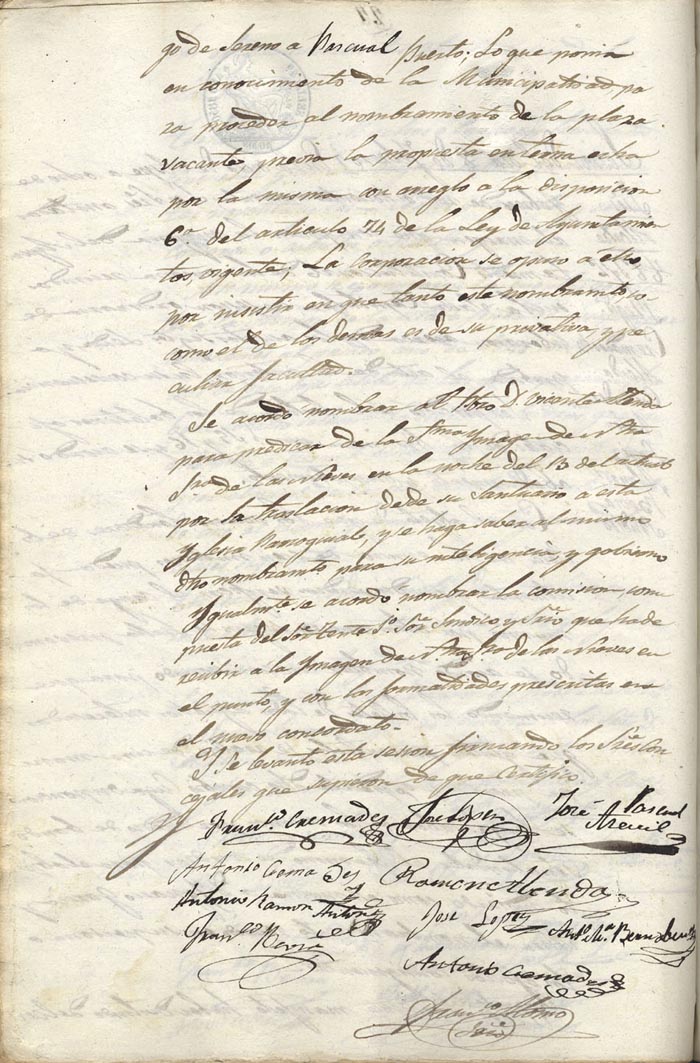 go de Sereno a Pascual Puerto; Lo que ponia
en conocimiento de la Municipalidad pa
ra proceder al nombramiento de la plaza
vacante, previa la propuesta en terna echa
por la misma con arreglo a la disposicion
6ª del articulo 74 de la Ley de Ayuntamien
tos, vigente; La Corporacion se opuso a ello
por insistir en que tanto este nombramto
como el de los demas es de su privativa, y pe
culiar facultad.
Se acordo nombrar al Pbro D. Vicente
para predicar de la Sma Ymagen de Ntra
Sra de las Nieves en la noche del 13 del actual
por la traslacion desde su Santuario a esta
Yglesia Parroquial, y se haga saber al mismo
dho nombramto para su inteligencia, y gobierno
Ygualmte se acordo nombrar la comision, com
puesta del Sor Tente 1º Sor Sindico y Srio que ha de
recibir a la Ymagen de Ntra Sra de las Nieves en
el punto, y con las formalidades prescritas en
el nuevo concordato.
Y se levanto esta sesion firmando los Sres Con
cejales que supieron de que Certifico.
Franco Cremades José Lopez José Pascual
Antonio Crema Des Ramon
Antonio Ramon Antonio
José Lopez Anto Ma Bernabeu
Franco
Antonio Cremades
Franco Alonso
Srio